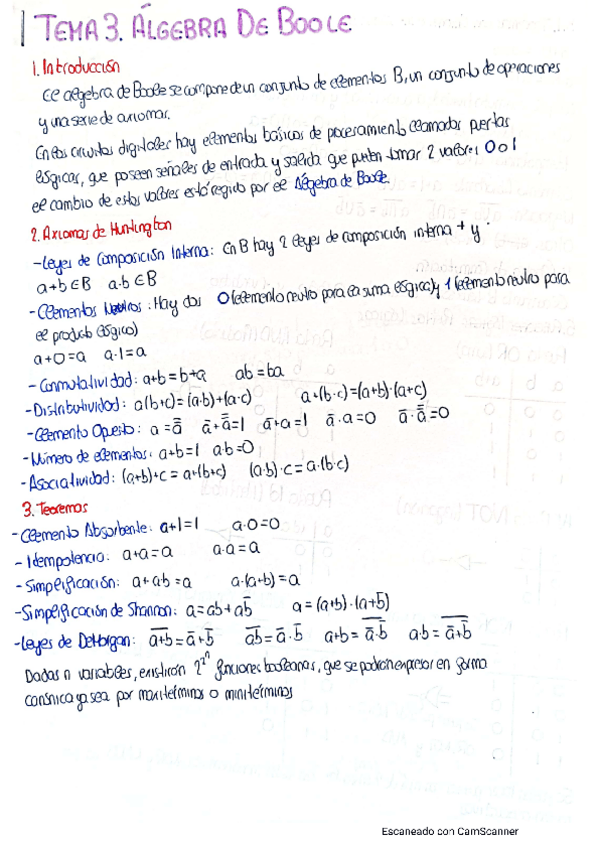 TEMA 3. ÁLGEBRA DE BOOLE
1. Introducción
El álgebra de Boole se compone de un conjunto de elementos B, un conjunto de operaciones
y una serie de axiomas.
En los circuitos digitales hay elementos básicos de procesamiento llamados puertas
lógicas, que poseen señales de entrada y salida que pueden tomar 2 valores 0 o 1
el cambio de estos valores está regido por el Álgebra de Boole.
2. Axiomas de Huntington
- Leyes de Composición Interna: En B hay 2 leyes de composición interna + y ·
a+b ∈ B a·b ∈ B
- Elementos Neutros: Hay dos 0 (elemento neutro para la suma lógica) y 1 (elemento neutro para
el producto lógico)
a+0=a a·1=a
- Conmutatividad: a+b=b+a ab=ba
- Distributividad: a(b+c)=(a·b)+(a·c) a+(b·c)=(a+b)·(a+c)
- Elemento Opuesto: a=a̿ a̅+a̿=1 a̅+a=1 a̅·a=0 a̅·a̿=0
- Número de elementos: a+b=1 a·b=0
- Asociatividad: (a+b)+c = a+(b+c) (a·b)·c = a·(b·c)
3. Teoremas
- Elemento Absorbente: a+1=1 a·0=0
- Idempotencia: a+a=a a·a=a
- Simplificación: a+a·b=a a·(a+b)=a
- Simplificación de Shannon: a=ab+ab̅ a=(a+b)·(a+b̅)
- Leyes de DeMorgan: a̅+̅b̅=a̅+b̅ a̅b̅=a̅·b̅ a+b=a̅̅·̅b̅̅ a·b=a̅̅+̅b̅̅
Dadas n variables, existirán 2^2^n funciones booleanas, que se podrán expresar en forma
canónica ya sea por maxitérminos o minitérminos
Escaneado con CamScanner